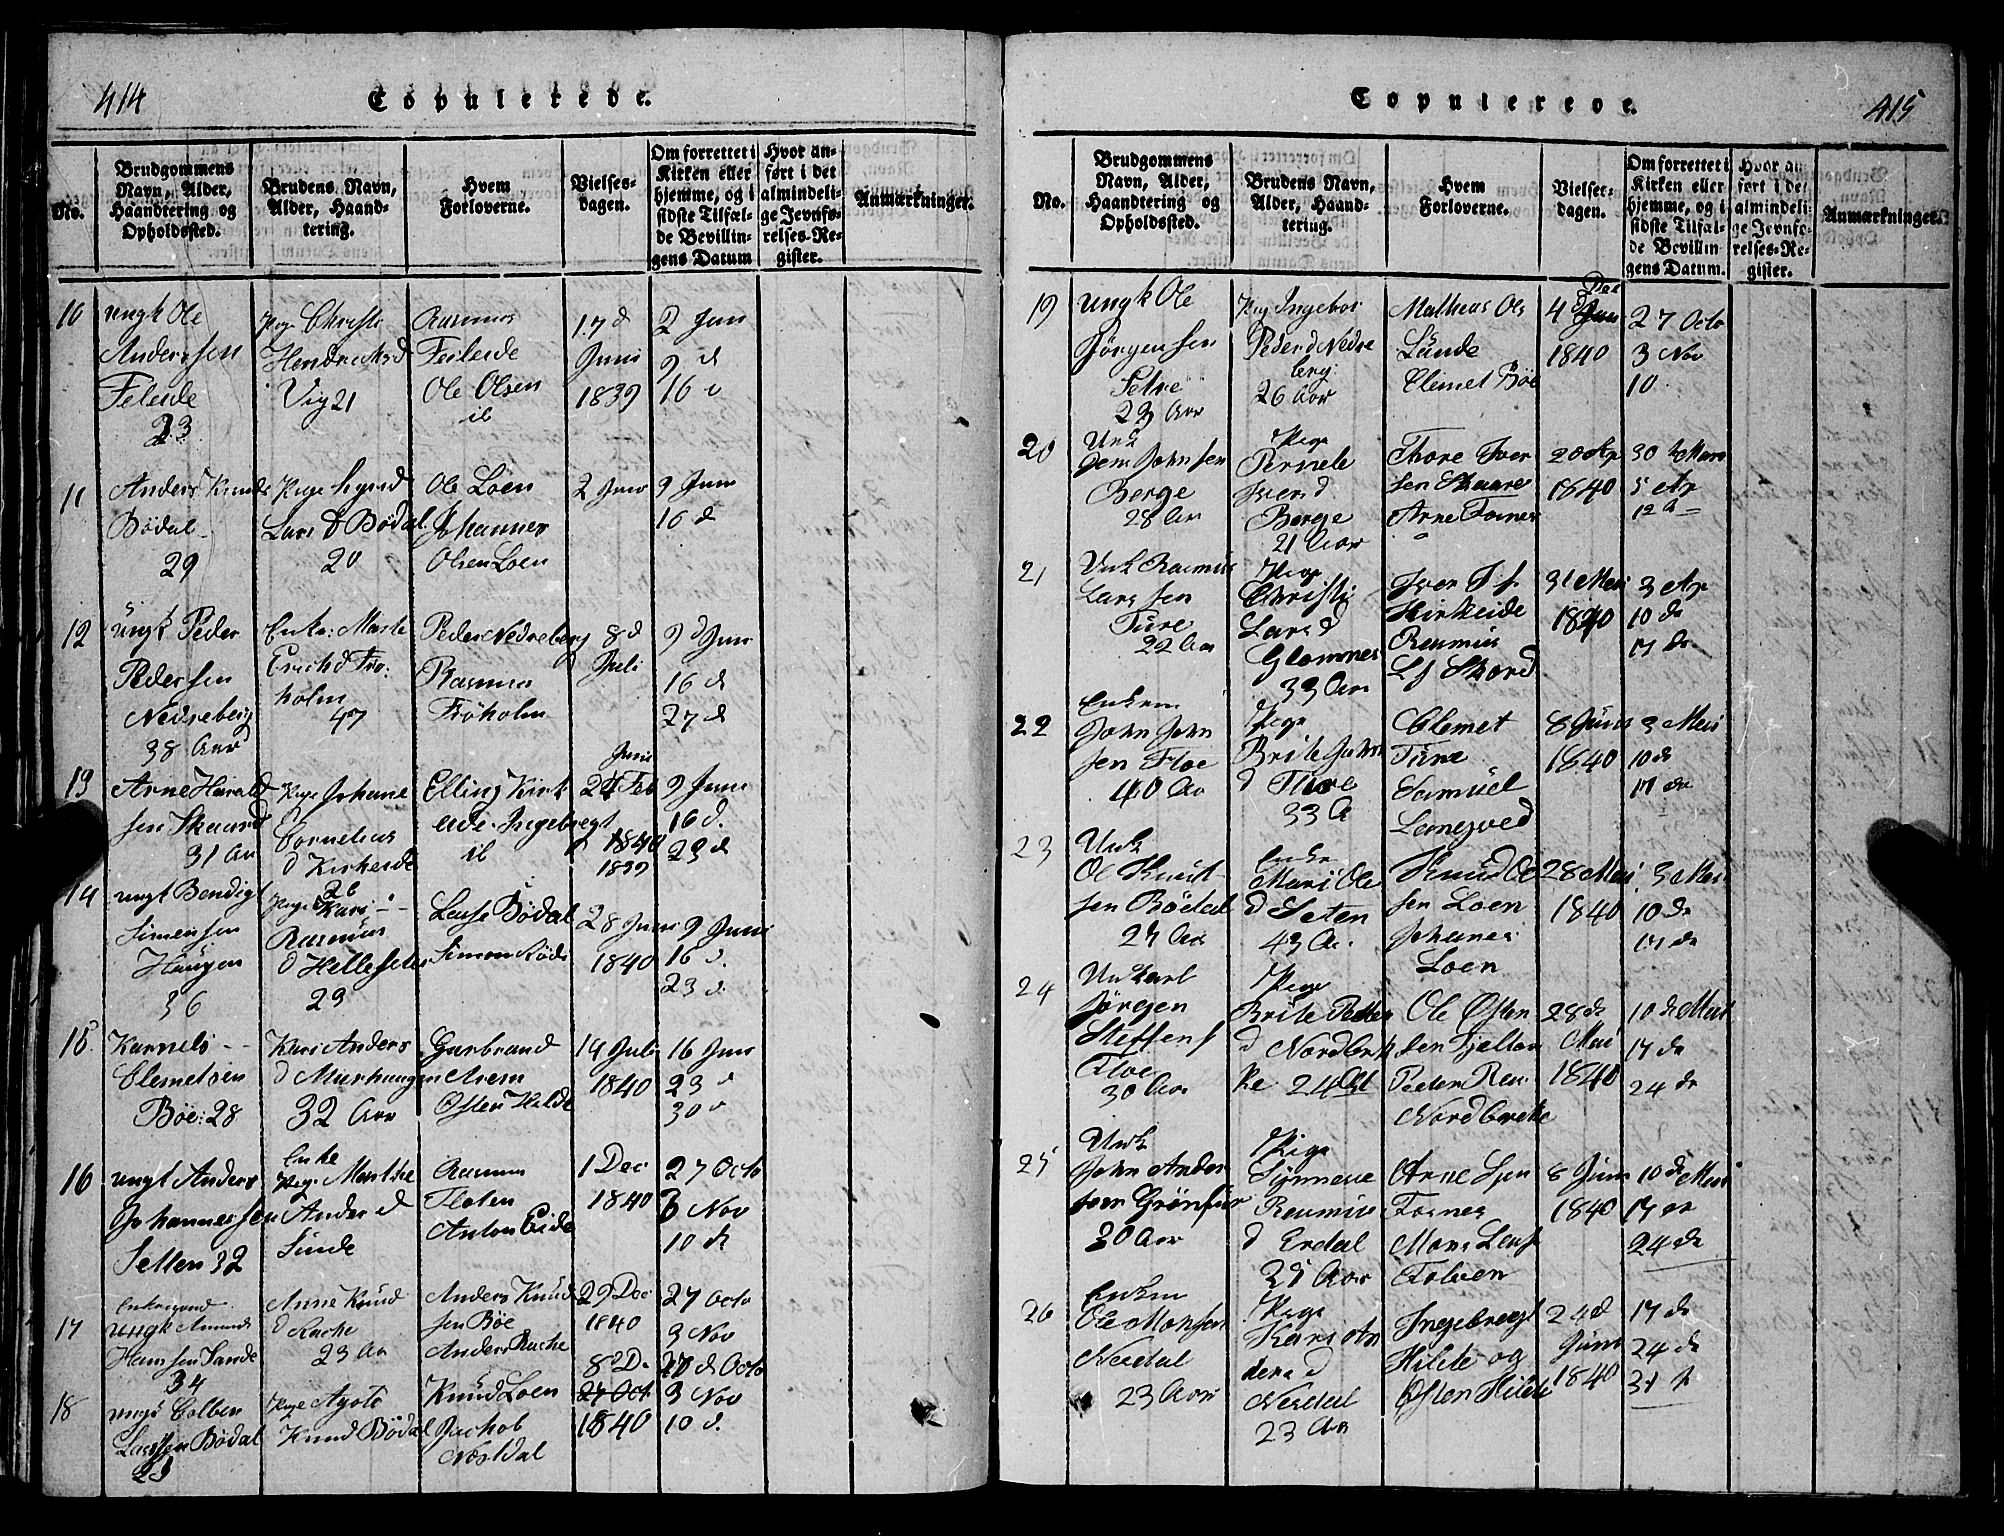 414
Copulerede.
No.
Brudgommens
Navn, Alder,
Haandtering og
Opholdssted.
Brudens Navn,
Alder, Haand-
tering.
Hvem
Forloverne.
Vielses-
dagen.
Om forrettet i
Kirken eller
hjemme, og i
sidste Tilfæl-
de Bevillin-
gens Datum
Hvor an-
ført i det
almindeli-
ge Jevnfø-
relses-Re-
gister.
Anmærkninger.
10
ungk Ole
Anderssen
Feleide
23
Pige Christi
Hendricksd
Vig 21
Rasmus
Feleide
Ole Olsen
ib
17 d
Juni
1839
2 Juni
9 d
16 d
11
Anders Knuds
Bødal
29
Pige
Lars d Bødal
20
Ole Loen
Johannes
Olsen Loen
2 Juni
9 Juni
16 d
12
ungk Peder
Pedersen
Nedreberg
38 Aar
Enke: Marte
Erichd Frø-
holm
47
Peder Nedreberg
Rasmus
Frøholm
8 d
Juli
9 d Juni
16 d
27 d
13
Arne Harald
sen Skaard
31 Aar
Pige Johane
Cornelius
d Kirkeide
26
Elling Kirk
eide Ingebregt
ib
Juni
24 Feb
1840
1839
9 Juni
16 d.
23 d
14
ungk Bendigt
Simensen
Haugen
36
Pige Kari
Rasmus
d Hellesetes
29
Lasse Bødal
Simon Rødi
28 Juni
1840
9 Juni
16 d.
23 d.
15
Karnels
Clemetsen
Bøe: 28
Kari Anders
d Murhaugen
32 Aar
Garbrand
Aven
Østen Hilde
14 Juli
1840
16 Juni
23 d
30 d
16
ungk Anders
Johannessen
Setten 32
Enke
Pige Marthe
Anders d
Sunde
Rasmus
Floten
Anton Eide
1 Dec
1840
27 Octo
3 Nov
10 d
17
Enkemand
ungk Amund
Hanssen Sande
34
Anne Knud
d Rache
23 Aar
Anders Knud
sen Bøe
Anders Rache
29 Dec
1840
27 Octo
3 Nov
18
ungk Colben
Larssen Bødal
23
Pige Agote
Knud Bødal
Knud Loen
Jachob
Nesdal
8 D.
27 Oct
1840
27 d Octo
3 Nov
10 d.
415
Copulerede.
No.
Brudgommens
Navn, Alder,
Haandtering og
Opholdssted.
Brudens Navn,
Alder, Haand-
tering.
Hvem
Forloverne.
Vielses-
dagen.
Om forrettet i
Kirken eller
hjemme, og i
sidste Tilfæl-
de Bevillin
gens Datum.
Hvor an
ført i det
almindeli-
ge Jevnfø-
relses-Re-
gister.
Anmærkninger.
19
ungk Ole
Jørgensen
Setre
23 Aar
Pig Ingebor
Peder d Nedre
berg
26 Aar
Mathias Ols
Sunde
Clemet Bøe
4
1840
27 Octo
3 Nov
10
20
Unk
Jens Johnsen
Berge
28 Aar
Pige
Pernele
Iver d
Berge
21 Aar
Thore Iver
sen Skaare
Arne Tornes
20 Ap
1840
30 Mars
5 Ap
12 d
21
Unk Rasmus
Larssen
Ture
22 Aar
Pige
Christi
Lars d
Glomnes
33 Aar
Iver I f
Kirkeide
Rasmus
L f Skard
31 Mai
1840
3 Ap
10 de
17 de
22
Enkem
John John
sen Floe
40 Aar
Pige
Brite John
d Ture
33 A
Clemet
Ture
Samuel
8 Juni
1840
3 Mai
10 de
17 de
23
Unk
Ole Knut
sen Bødal
27 Aar
Enke
Mari Ole
d Seten
43 Aar
Knud Ole
sen Loen
Johanes
Loen
28 Mai
1840
3 Mai
10 de
17 de
24
Unkarl
Jørgen
Steffens
Floe
30 Aar
Pige
Brite Petter
d Nordbre
ke 24
Ole Østen
sen Tjellan
Peder Ras
Nordbreke
28 de
Mai
1840
10 de Mai
17 de
24 de
25
Unk
John Ander
sen Grønfur
30 Aar
Pige
Synneve
Rasmus
d Erdal
27 Aar
Arne Iver
Tornes
Mons Lasse
Tolven
8 Juni
1840
10 de Mai
17 de
24 de
26
Enkem
Ole Monsen
Nesdal
23 Aar
Pige
Kari An
ders d
Nesdal
23 Aar
Ingebregt
Hilde og
Østen Hilde
24 d
Juni
1840
17 de
24 de
31 d